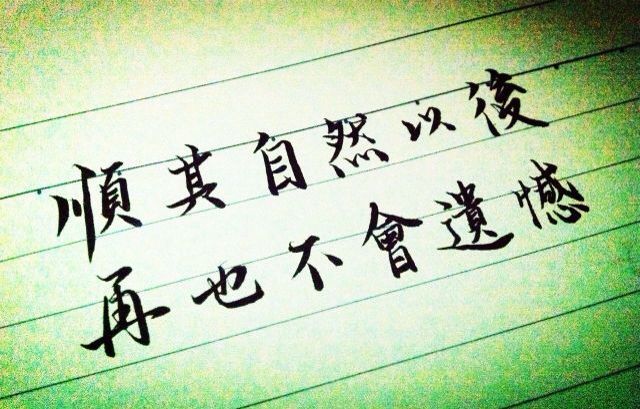 順其自然以後
再也不會遺憾